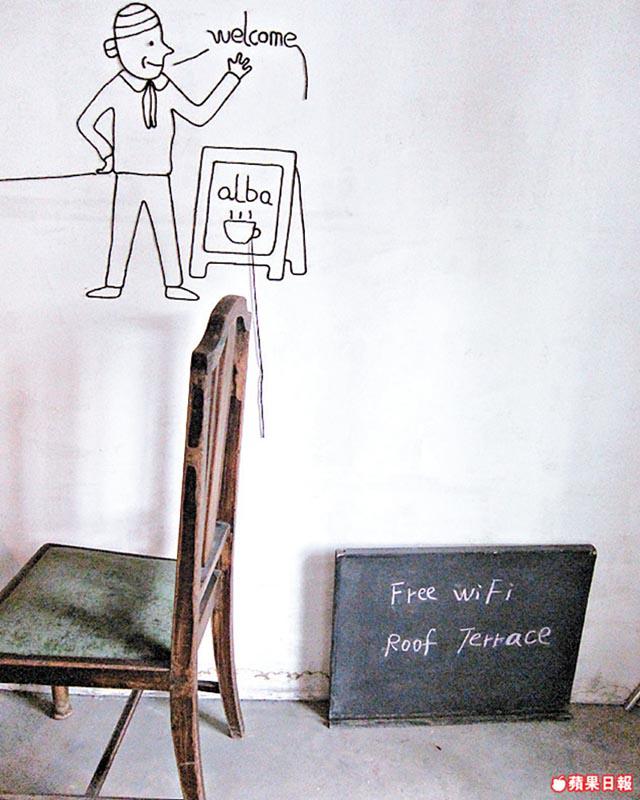 welcome
alba
Free wiFi
Roof Terrace
蘋果日報